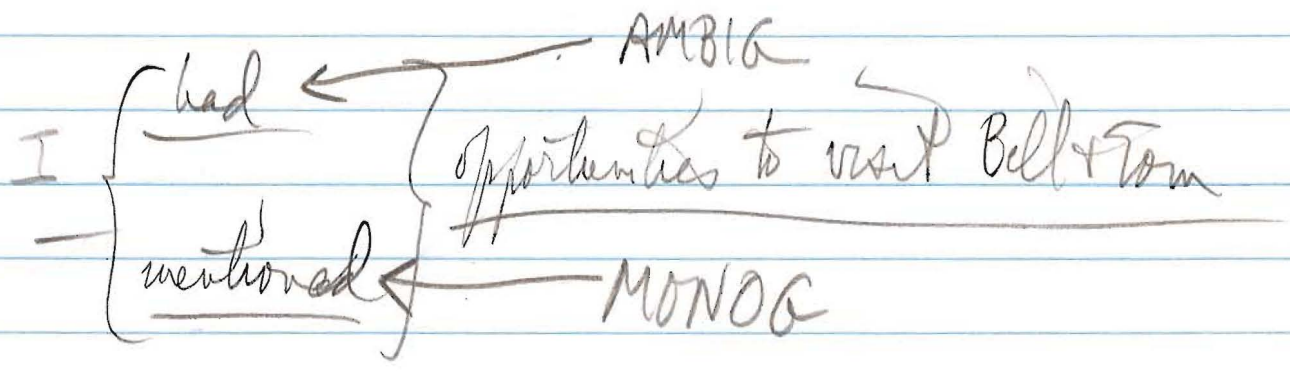 AMBIG
had
I opportunities to visit Bill + Tom
mentioned
MONOG